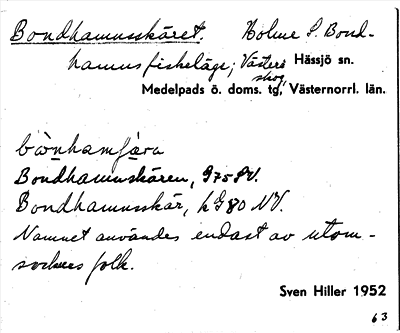 Bondhamnsskäret. Holme S. Bond-
hamns fiskeläge; Västerå skog, Hässjö sn.
Medelpads ö. doms. tg, Västernorrl. län.
Bondhamnskären, G75SV.
Bondhamnsskär, hG80 NV.
Namnet användes endast av utom-
sockens folk.
Sven Hiller 1952
63